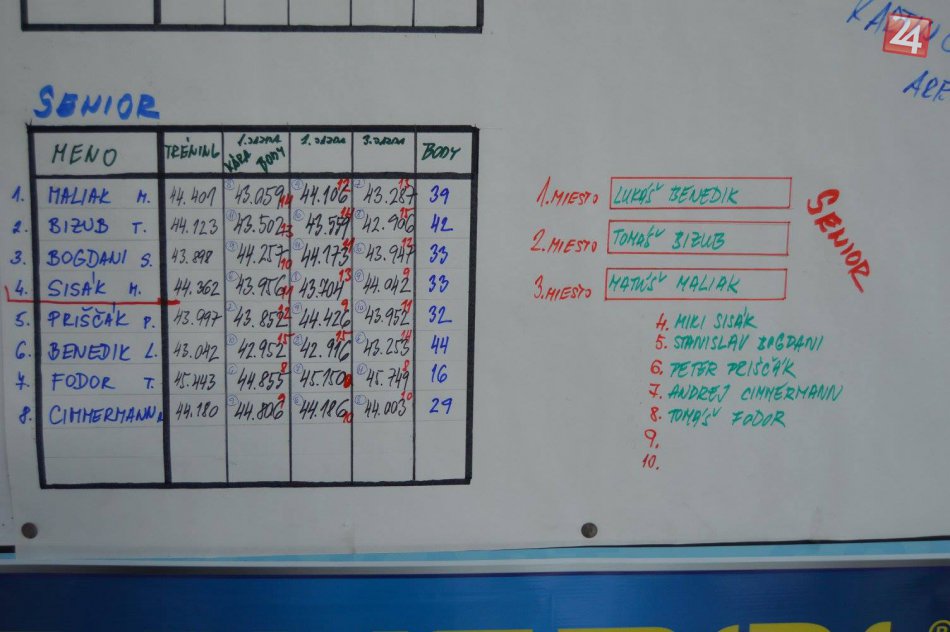 24
SENIOR
MENO TRÉNING 1. JAZDA KÁRA BODY 2. JAZDA 3. JAZDA BODY
1. MALIAK M. 44.401 43.059 14 44.106 12 43.287 13 39
2. BIZUB T. 44.123 43.502 13 43.559 14 42.906 15 42
3. BOGDANI S. 43.898 44.257 10 44.173 11 43.947 12 33
4. SISÁK M. 44.362 43.956 11 43.704 13 44.042 9 33
5. PRIŠČÁK P. 43.997 43.852 12 44.426 9 43.952 11 32
6. BENEDIK L. 43.042 42.952 15 42.996 15 43.253 14 44
7. FODOR T. 45.443 44.855 8 45.150 45.749 8 16
8. CIMMERMANN A. 44.180 44.806 9 44.186 10 44.003 10 29
1. MIESTO LUKÁŠ BENEDIK
2. MIESTO TOMÁŠ BIZUB
3. MIESTO MATÚŠ MALIAK
4. MIKI SISÁK
5. STANISLAV BOGDANI
6. PETER PRIŠČÁK
7. ANDREJ CIMMERMANN
8. TOMÁŠ FODOR
9.
10.
SENIOR